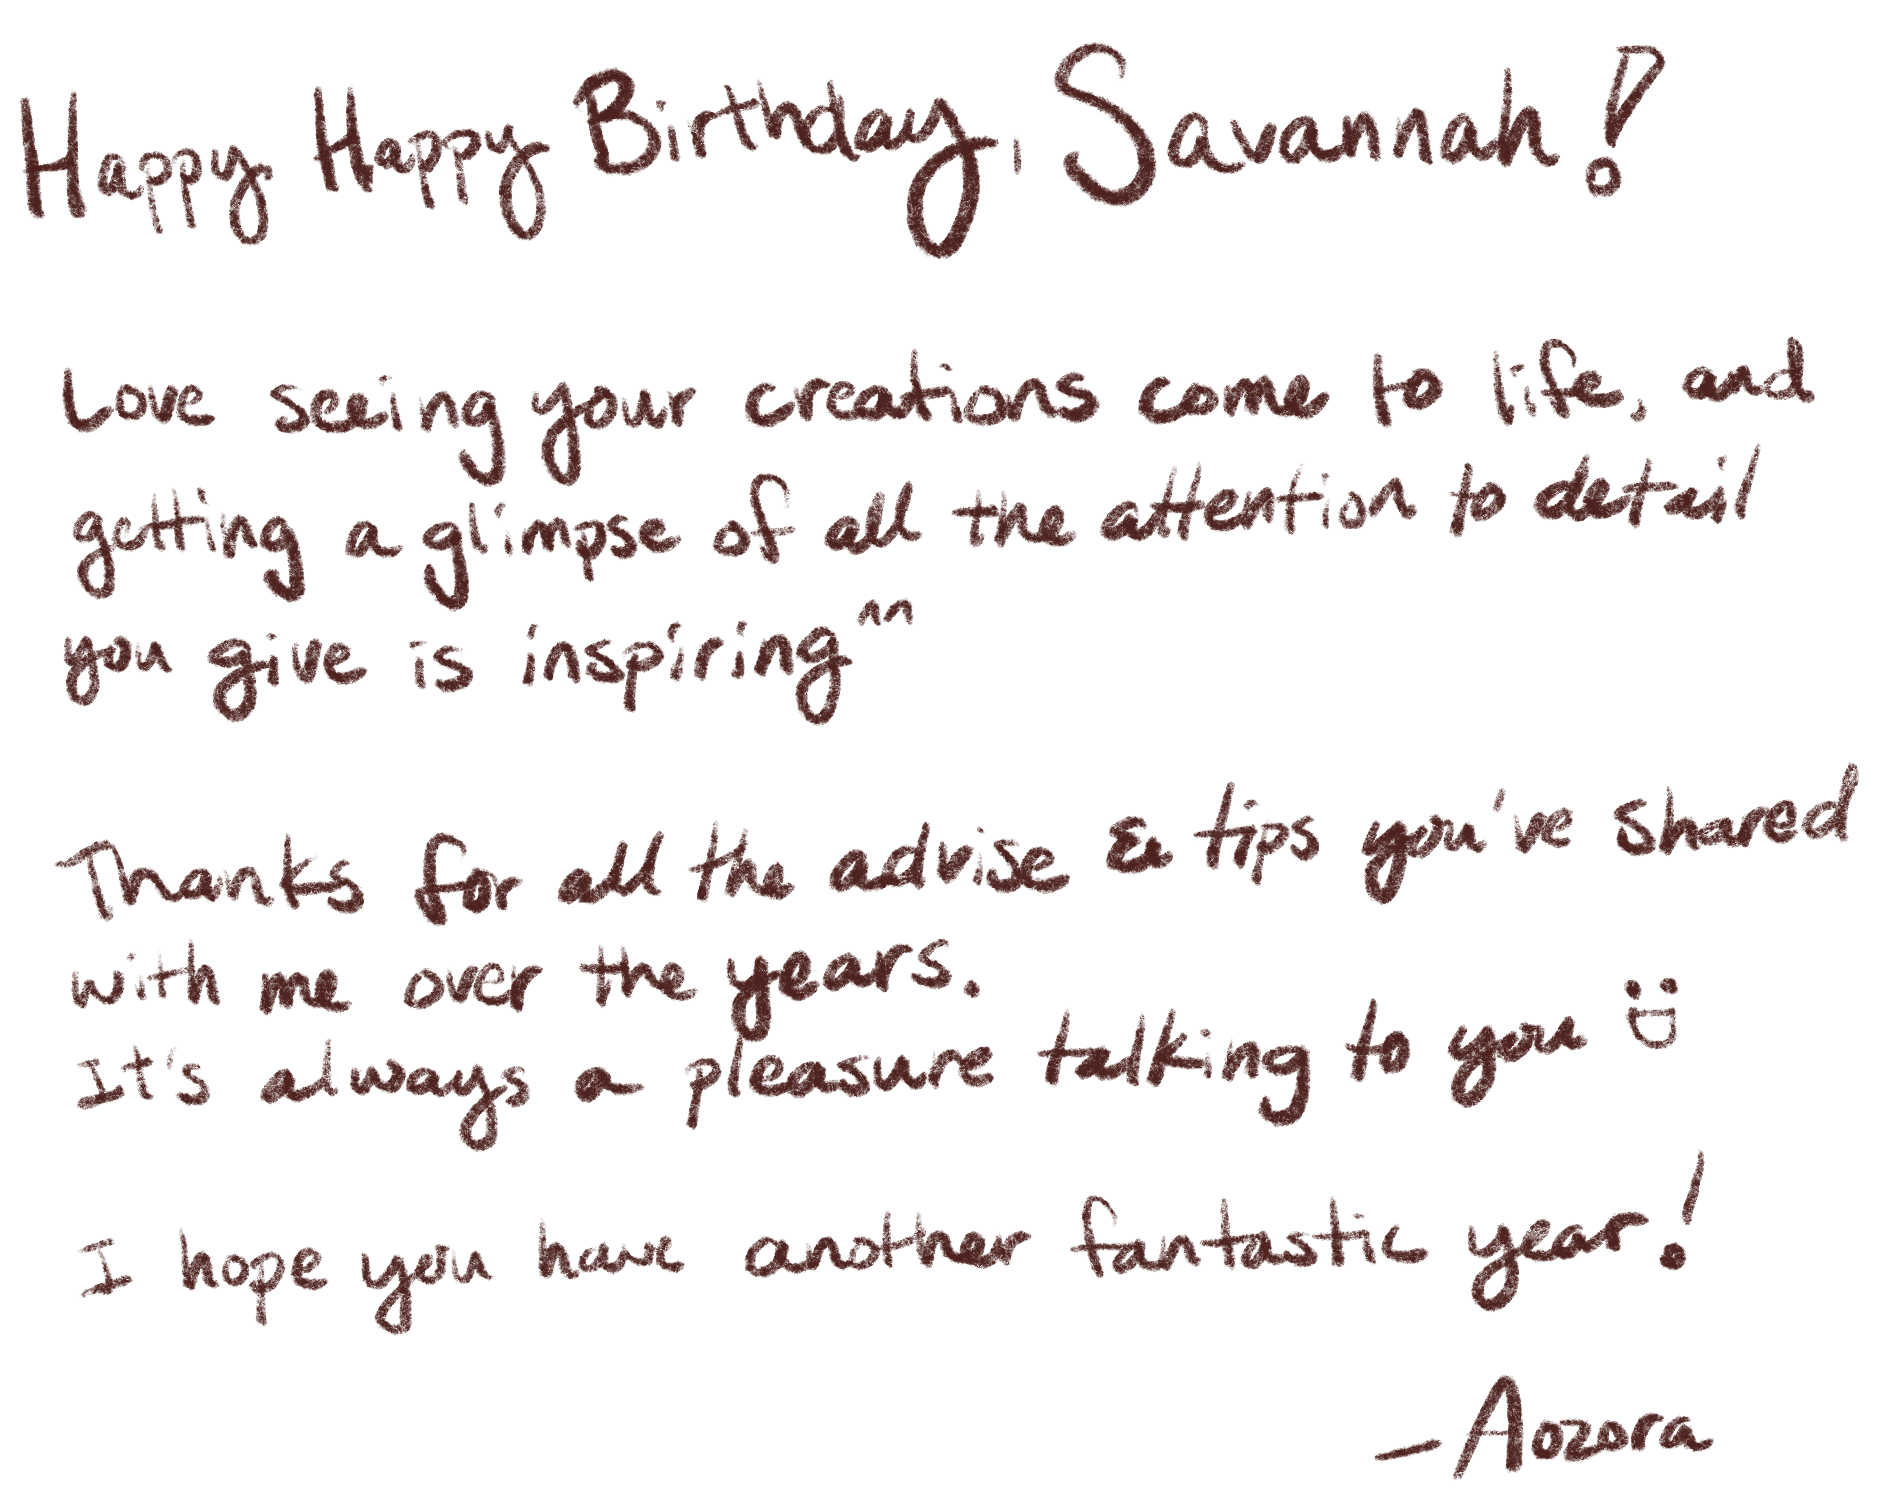 Happy Happy Birthday, Savannah!
Love seeing your creations come to life, and
getting a glimpse of all the attention to detail
you give is inspiring ^^
Thanks for all the advise & tips you've shared
with me over the years.
It's always a pleasure talking to you :D
I hope you have another fantastic year!
—Aozora